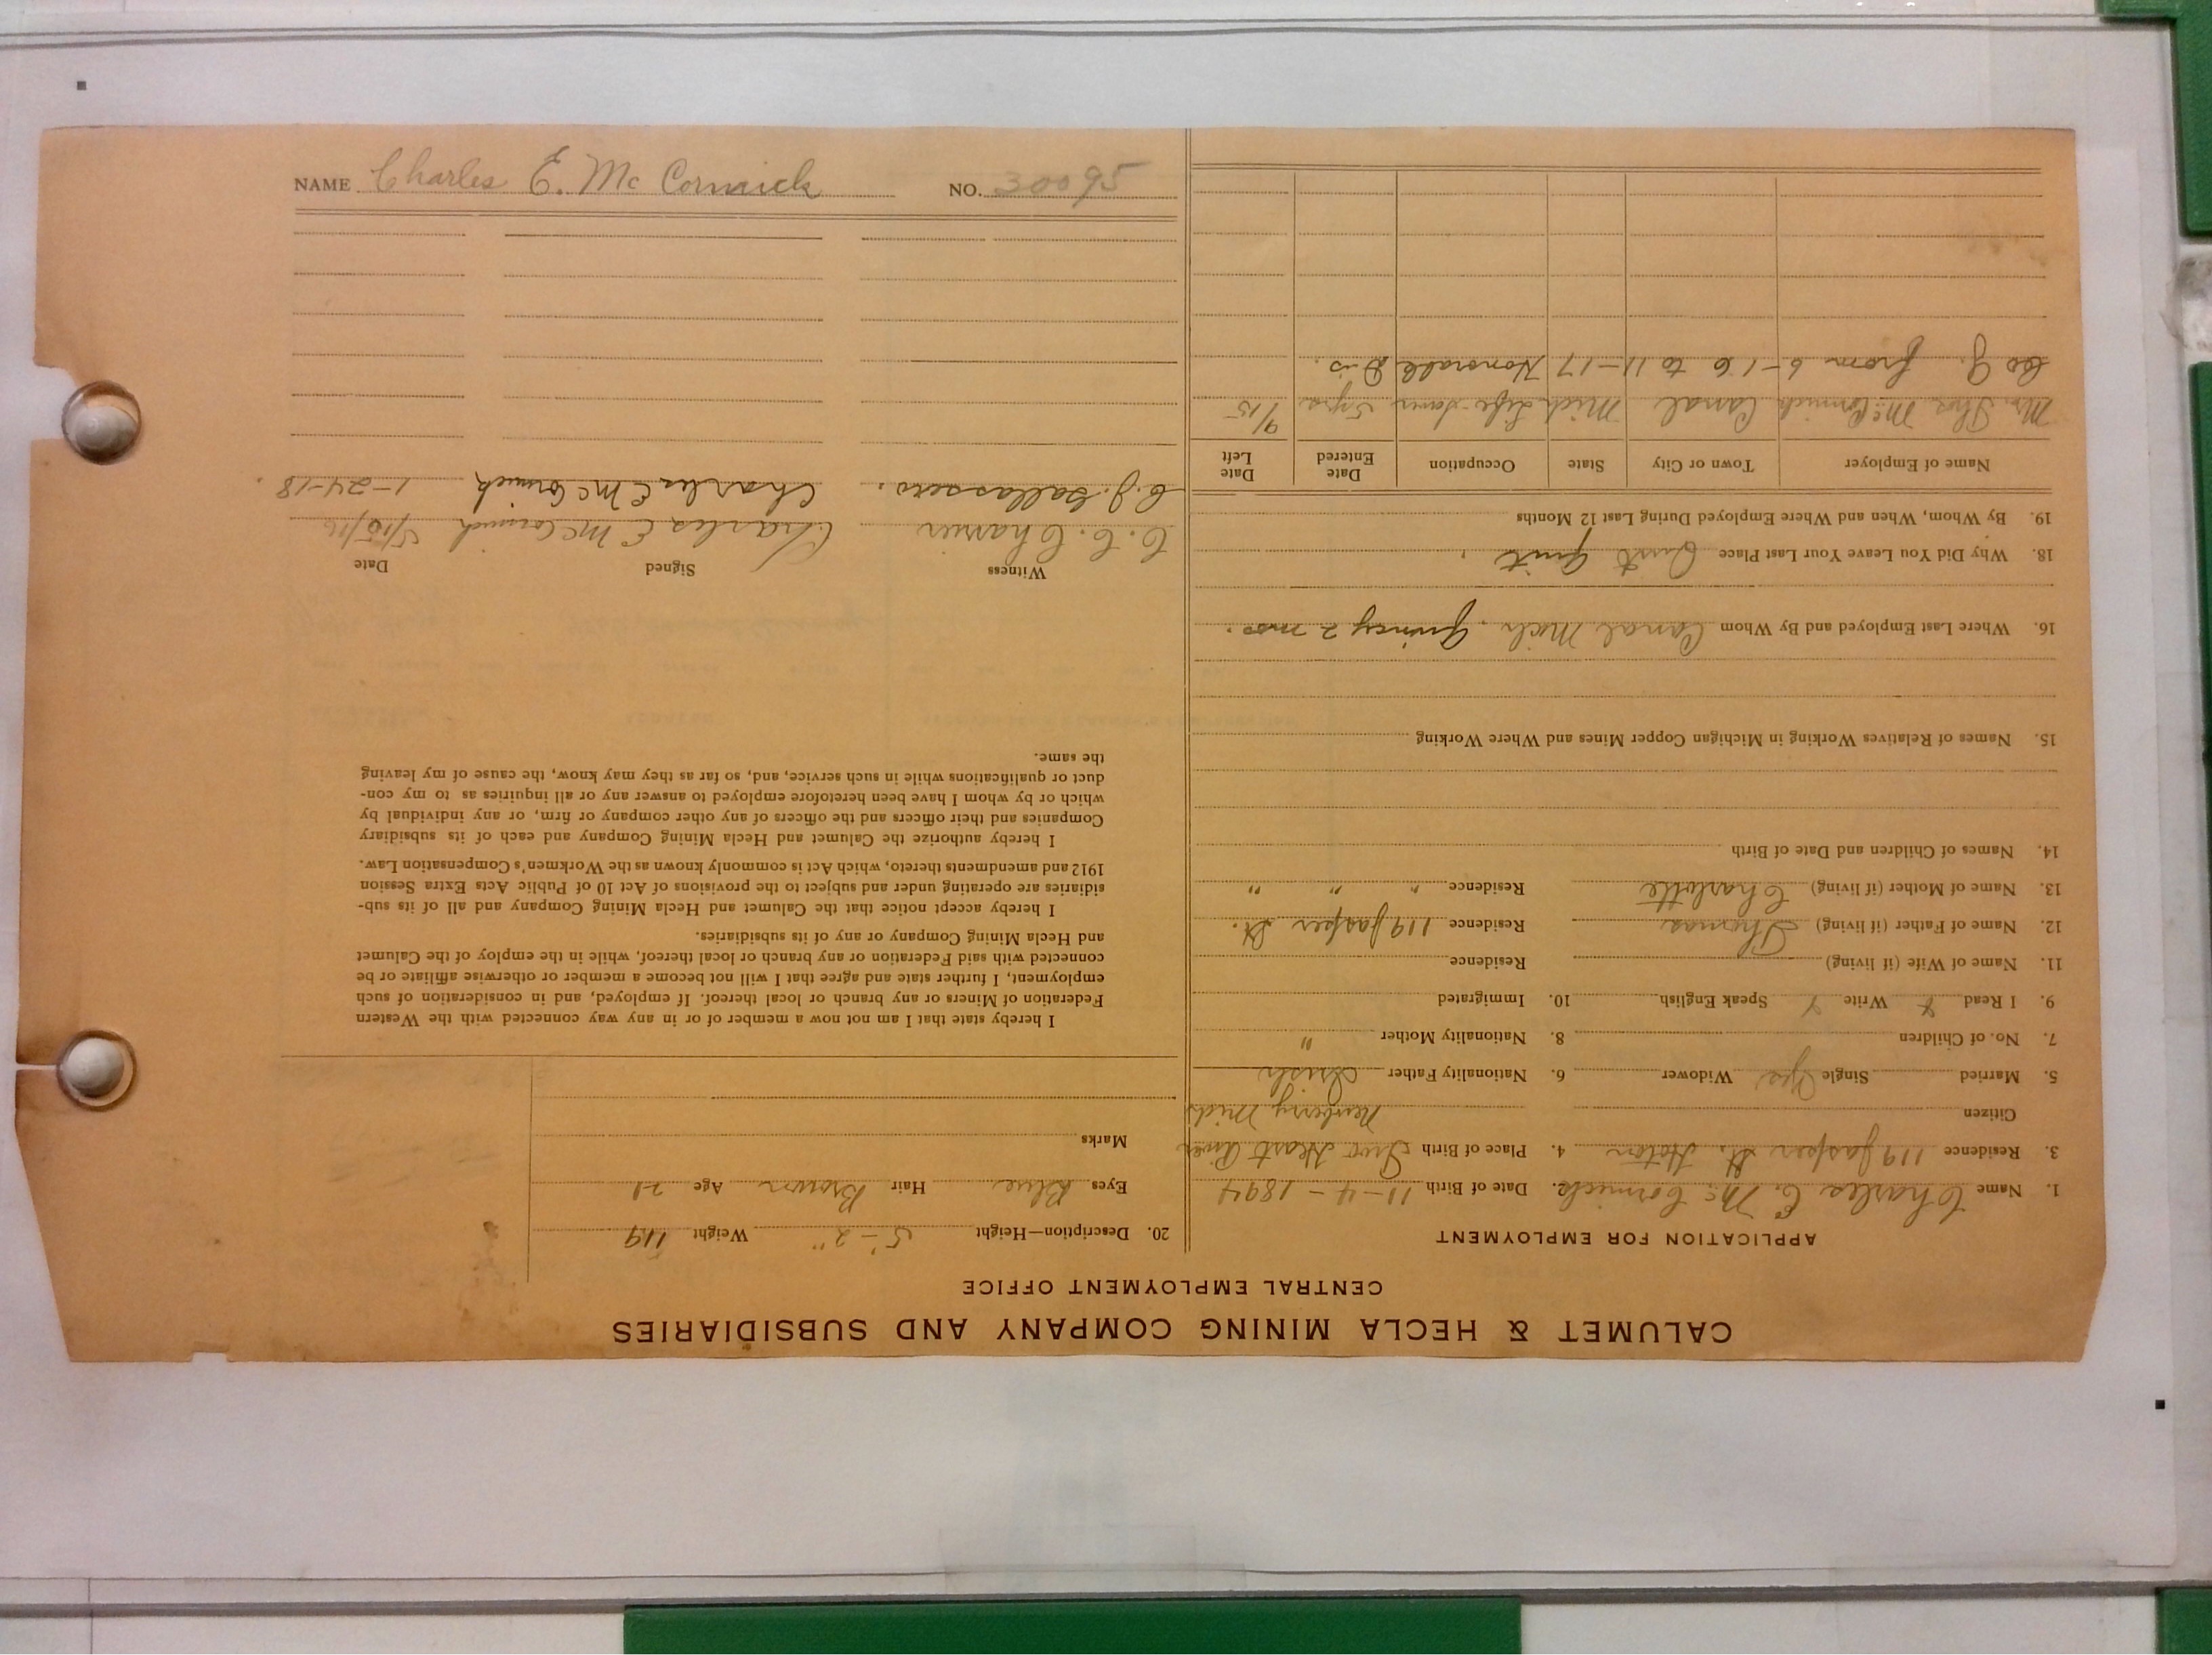 NAME Charles E. McCormick NO. 30095
CALUMET & HECLA MINING COMPANY AND SUBSIDIARIES
CENTRAL EMPLOYMENT OFFICE
APPLICATION FOR EMPLOYMENT
1. Name Charles E. McCormick 2. Date of Birth 11-4-1894
3. Residence 119 Jasper St. 4. Place of Birth Two Heart River
Citizen Newberry Mich
5. Married Single Yes Widower 6. Nationality Father Irish
7. No. of Children 8. Nationality Mother "
9. I Read Write Y Speak English 10. Immigrated
11. Name of Wife (if living) Residence
12. Name of Father (if living) Thomas Residence 119 Jasper St.
13. Name of Mother (if living) Charlotte Residence " " "
14. Names of Children and Date of Birth
15. Names of Relatives Working in Michigan Copper Mines and Where Working
16. Where Last Employed and By Whom Canal Mich. Quincy 2 mos.
18. Why Did You Leave Your Last Place Just Quit
19. By Whom, When and Where Employed During Last 12 Months
Name of Employer Town or City State Occupation Date Entered Date Left
Mr. Thos. McCormick Canal Mich Life Saver 5 yrs. 9/15
Co G. from 6-16 to 11-17 Honorable Dis.
20. Description—Height 5'-2" Weight 119
Eyes Blue Hair Brown Age 21
Marks
I hereby state that I am not now a member of or in any way connected with the Western
Federation of Miners or any branch or local thereof. If employed, and in consideration of such
employment, I further state and agree that I will not become a member or otherwise affiliate or be
connected with said Federation or any branch or local thereof, while in the employ of the Calumet
and Hecla Mining Company or any of its subsidiaries.
I hereby accept notice that the Calumet and Hecla Mining Company and all of its sub-
sidiaries are operating under and subject to the provisions of Act 10 of Public Acts Extra Session
1912 and amendments thereto, which Act is commonly known as the Workmen's Compensation Law.
I hereby authorize the Calumet and Hecla Mining Company and each of its subsidiary
Companies and their officers and the officers of any other company or firm, or any individual by
which or by whom I have been heretofore employed to answer any or all inquiries as to my con-
duct or qualifications while in such service, and, so far as they may know, the cause of my leaving
the same.
Witness Signed Date
C. C. Charles E McCormick 5/15/16
C. J. Charles E McCormick 1-24-18.